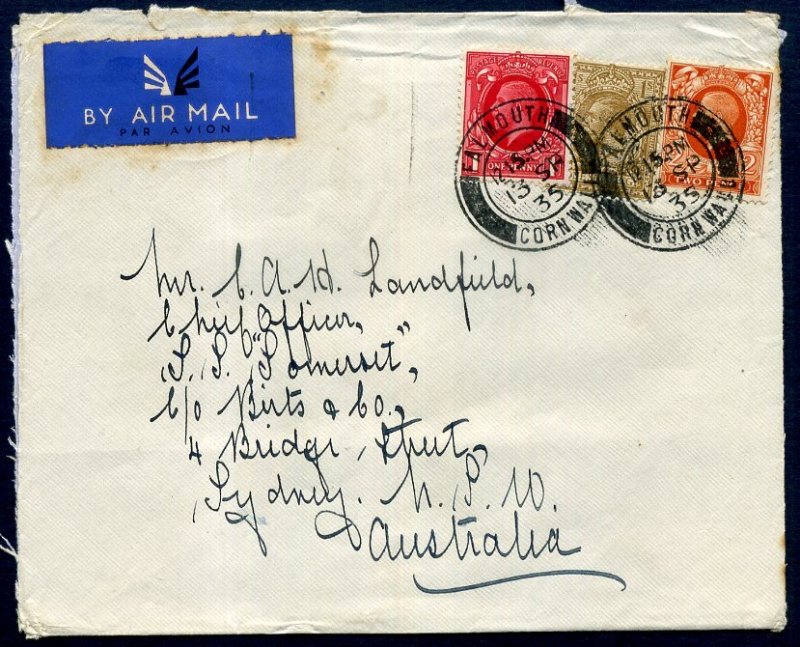 BY AIR MAIL
PAR AVION
POSTAGE REVENUE
1 ONE PENNY
2 TWO
FALMOUTH
12.15 PM
13 SP
35
CORNWALL
FALMOUTH
12.15 PM
13 SP
35
CORNWALL
Mr. C. A. H. Landfield,
Chief Officer,
S. S. "Somerset,"
C/o Birts & Co.,
4 Bridge Street,
Sydney. N. S. W.
Australia